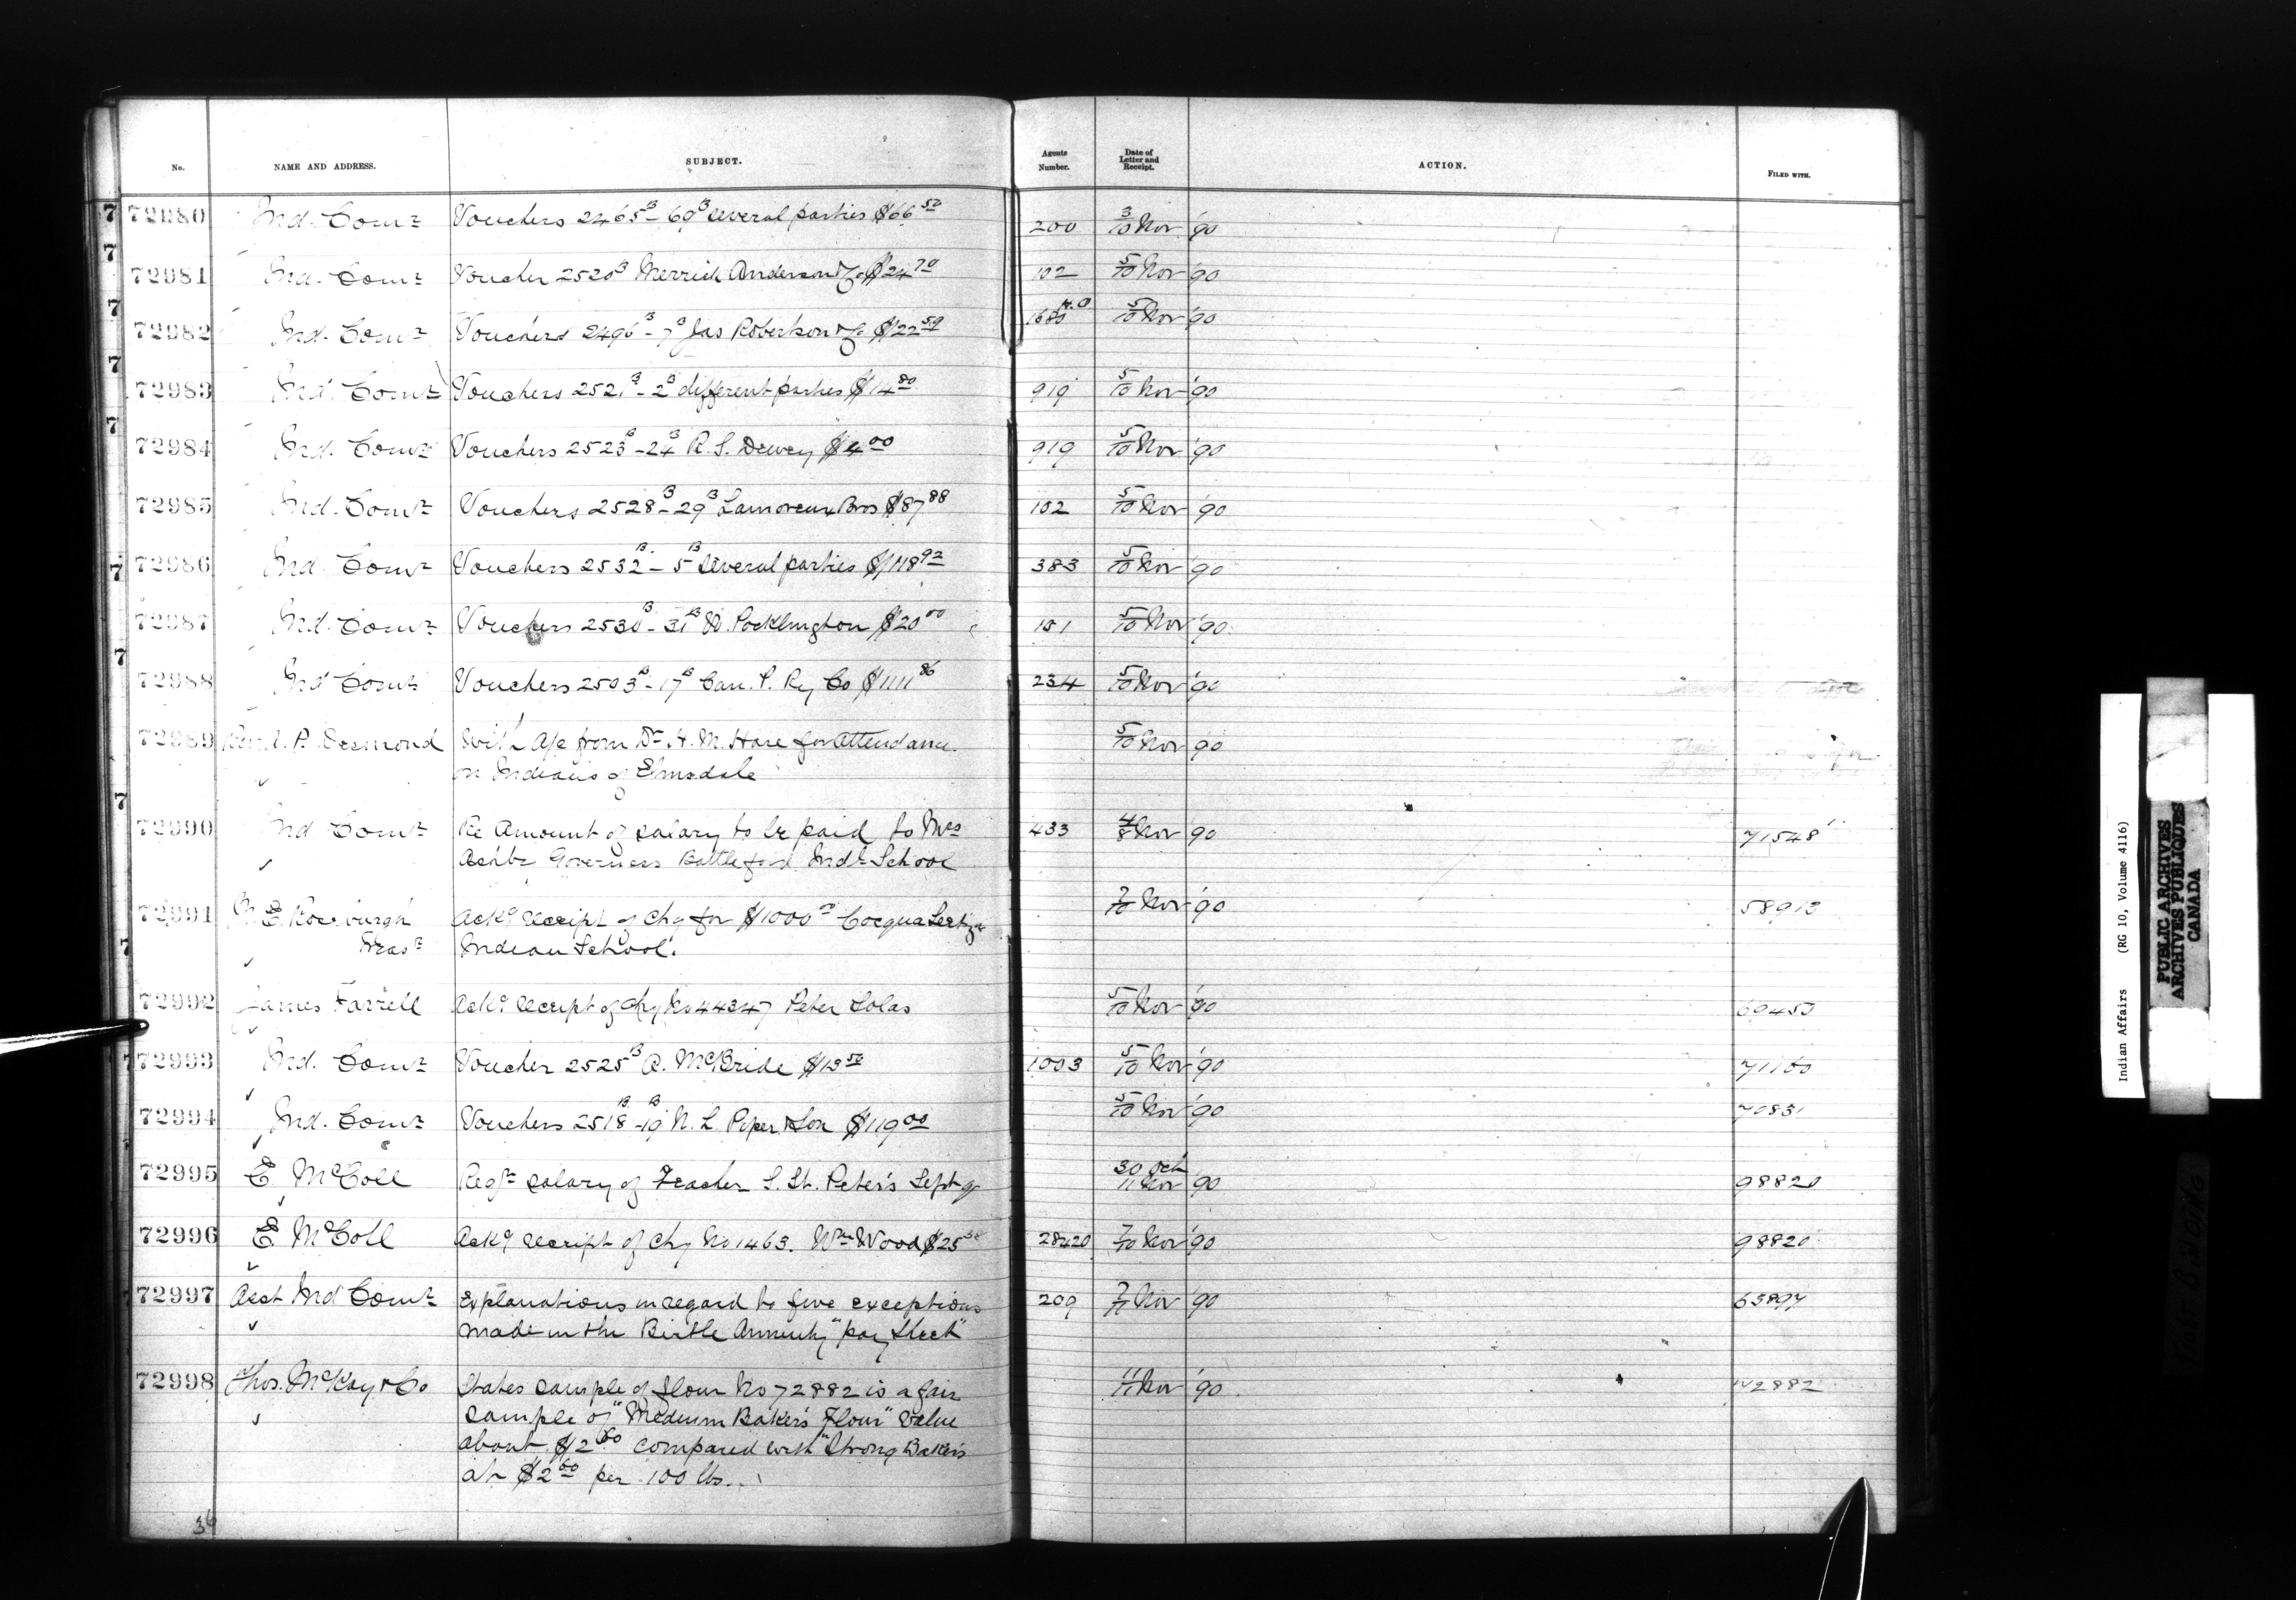 No. NAME AND ADDRESS. SUBJECT. Agents Number. Date of Letter and Receipt. ACTION. FILED WITH.
72980 Ind. Comr Vouchers 2465B - 69B several parties $66 50 200 3/10 Nov '90
72981 Ind. Comr Voucher 2520B Merrick Anderson & Co $24 70 102 5/10 Nov '90
72982 Ind. Comr Vouchers 2496B - 7B Jas Robertson & Co $22 59 H.O 5/10 Nov '90
72983 Ind. Comr Vouchers 2521B - 2B different parties $14 80 919 5/10 Nov '90
72984 Ind. Comr Vouchers 2523B - 24B R. S. Dewey $4 00 919 5/10 Nov '90
72985 Ind. Comr Vouchers 2528B - 29B Lamoreux Bros $87 88 102 5/10 Nov '90
72986 Ind. Comr Vouchers 2532B - 5B several parties $118 92 383 5/10 Nov '90
72987 Ind. Comr Vouchers 2530B - 31B W. Pocklington $20 00 101 5/10 Nov '90
72988 Ind Comr Vouchers 2503B - 17B Can. P. Ry Co $1111 86 234 5/10 Nov '90
72989 P. Desmond With A/c from Dr H. M. Hare for Attendance 5/10 Nov '90
on Indians of Elmsdale
72990 Ind Comr Re Amount of salary to be paid to Mrs 433 4/8 Nov 90 71548
Ashby Governess Battleford Indl School
72991 E. Roxburgh Ackg receipt of Chq for $1000 00 Coqualeetza 7/10 Nov '90 58913
Treasr Indian School.
72992 James Farrell Ackg receipt of Chq No 44347 Peter Solas 5/10 Nov '90 69453
72993 Ind. Comr Voucher 2525B A. McBride $13 50 1003 5/10 Nov '90 71160
72994 Ind. Comr Vouchers 2518B - 19B N. L. Piper & Son $119 00 5/10 Nov '90 70831
72995 E. McColl Regr salary of Teacher S. St. Peter's Sept qr 30 Oct/11 Nov '90 98820
72996 E. McColl Ackg receipt of Chq No 1463. Wm Wood $25 28420 7/10 Nov '90 98820
72997 Asst Ind Comr Explanations in regard to five exceptions 209 7/11 Nov '90 63897
made in the Birtle Annuity "pay sheet"
72998 Thos. McKay & Co States sample of flour No 72882 is a fair 11/11 Nov '90 72882
sample of "Medium Baker's Flour" value
about $2 compared with "Strong Bakers
at $2 60 per 100 lbs.
36
Indian Affairs (RG 10, Volume 4116)
PUBLIC ARCHIVES
ARCHIVES PUBLIQUES
CANADA